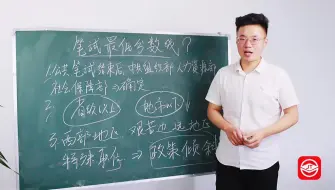 笔试最低分数线?
1.公共笔试结束后,中央组织部 人力资源部
社会保障部 → 确定
2. 省级以上 地市以下
3.西部地区 艰苦边远地区
特殊职位 ⇒ 政策倾斜